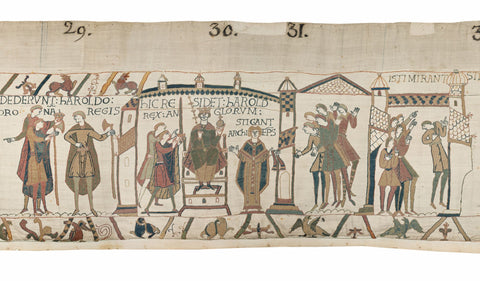 29. 30. 31. 3
DEDERVNT: hAROLDO:
ORO NA REGIS
hIC RE SIDET: hAROLD
REX: AN GLORVM:
STIGANT
ARChI EPS
ISTI MIRANT